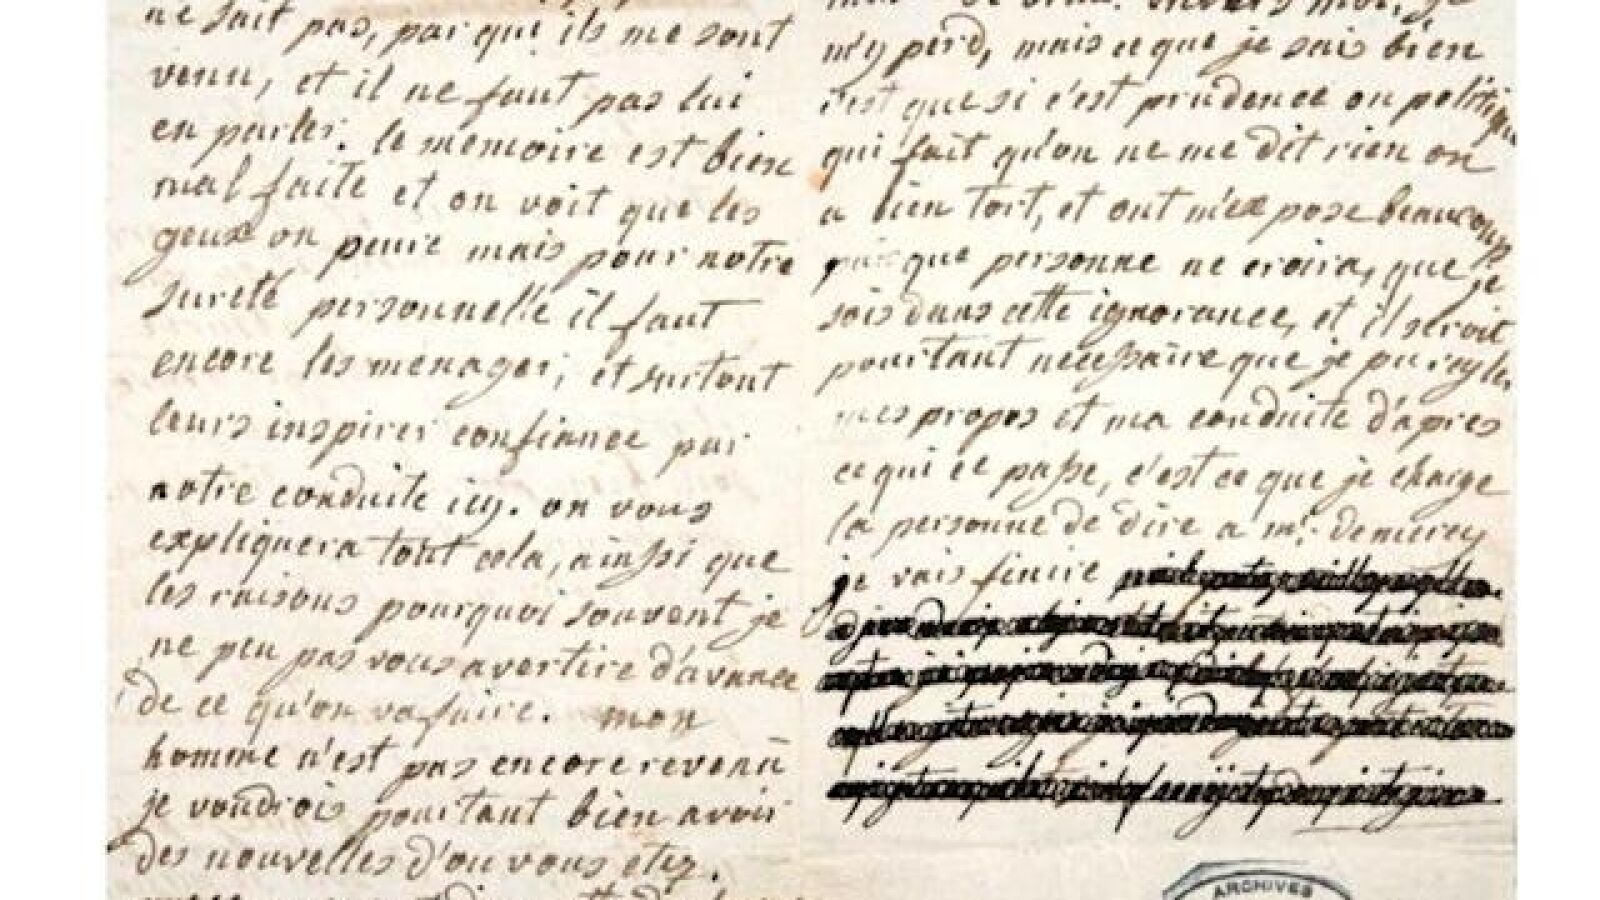 ne sait pas, par qui ils me sont
venu, et il ne faut pas lui
en parler. le memoire est bien
mal faite et on voit que les
geux on peure mais pour notre
sureté personnelle il faut
encore les menager, et surtout
leurs inspirer confiance par
notre conduite icy. on vous
expliquera tout cela, ainssi que
les raisons pourquoi souvent je
ne peu pas vous avertire d'avance
de ce qu'on va faire. mon
homme n'est pas encore revenü
je voudrois pourtant bien avoir
des nouvelles d'ou vous etez.
m'y perd, mais ce que je sais bien
c'est que si c'est prudence ou politique
qui fait qu'on ne me dit rien on
a bien tort, et ont m'expose beaucoup
puisque personne ne croira, que je
sois dans cette ignorance, et il seroit
pourtant necessaire que je pu regler
mes propos et ma conduite d'apres
ce qui ce passe, c'est ce que je charge
la personne de dire a mr. demercy
je vais finire
ARCHIVES